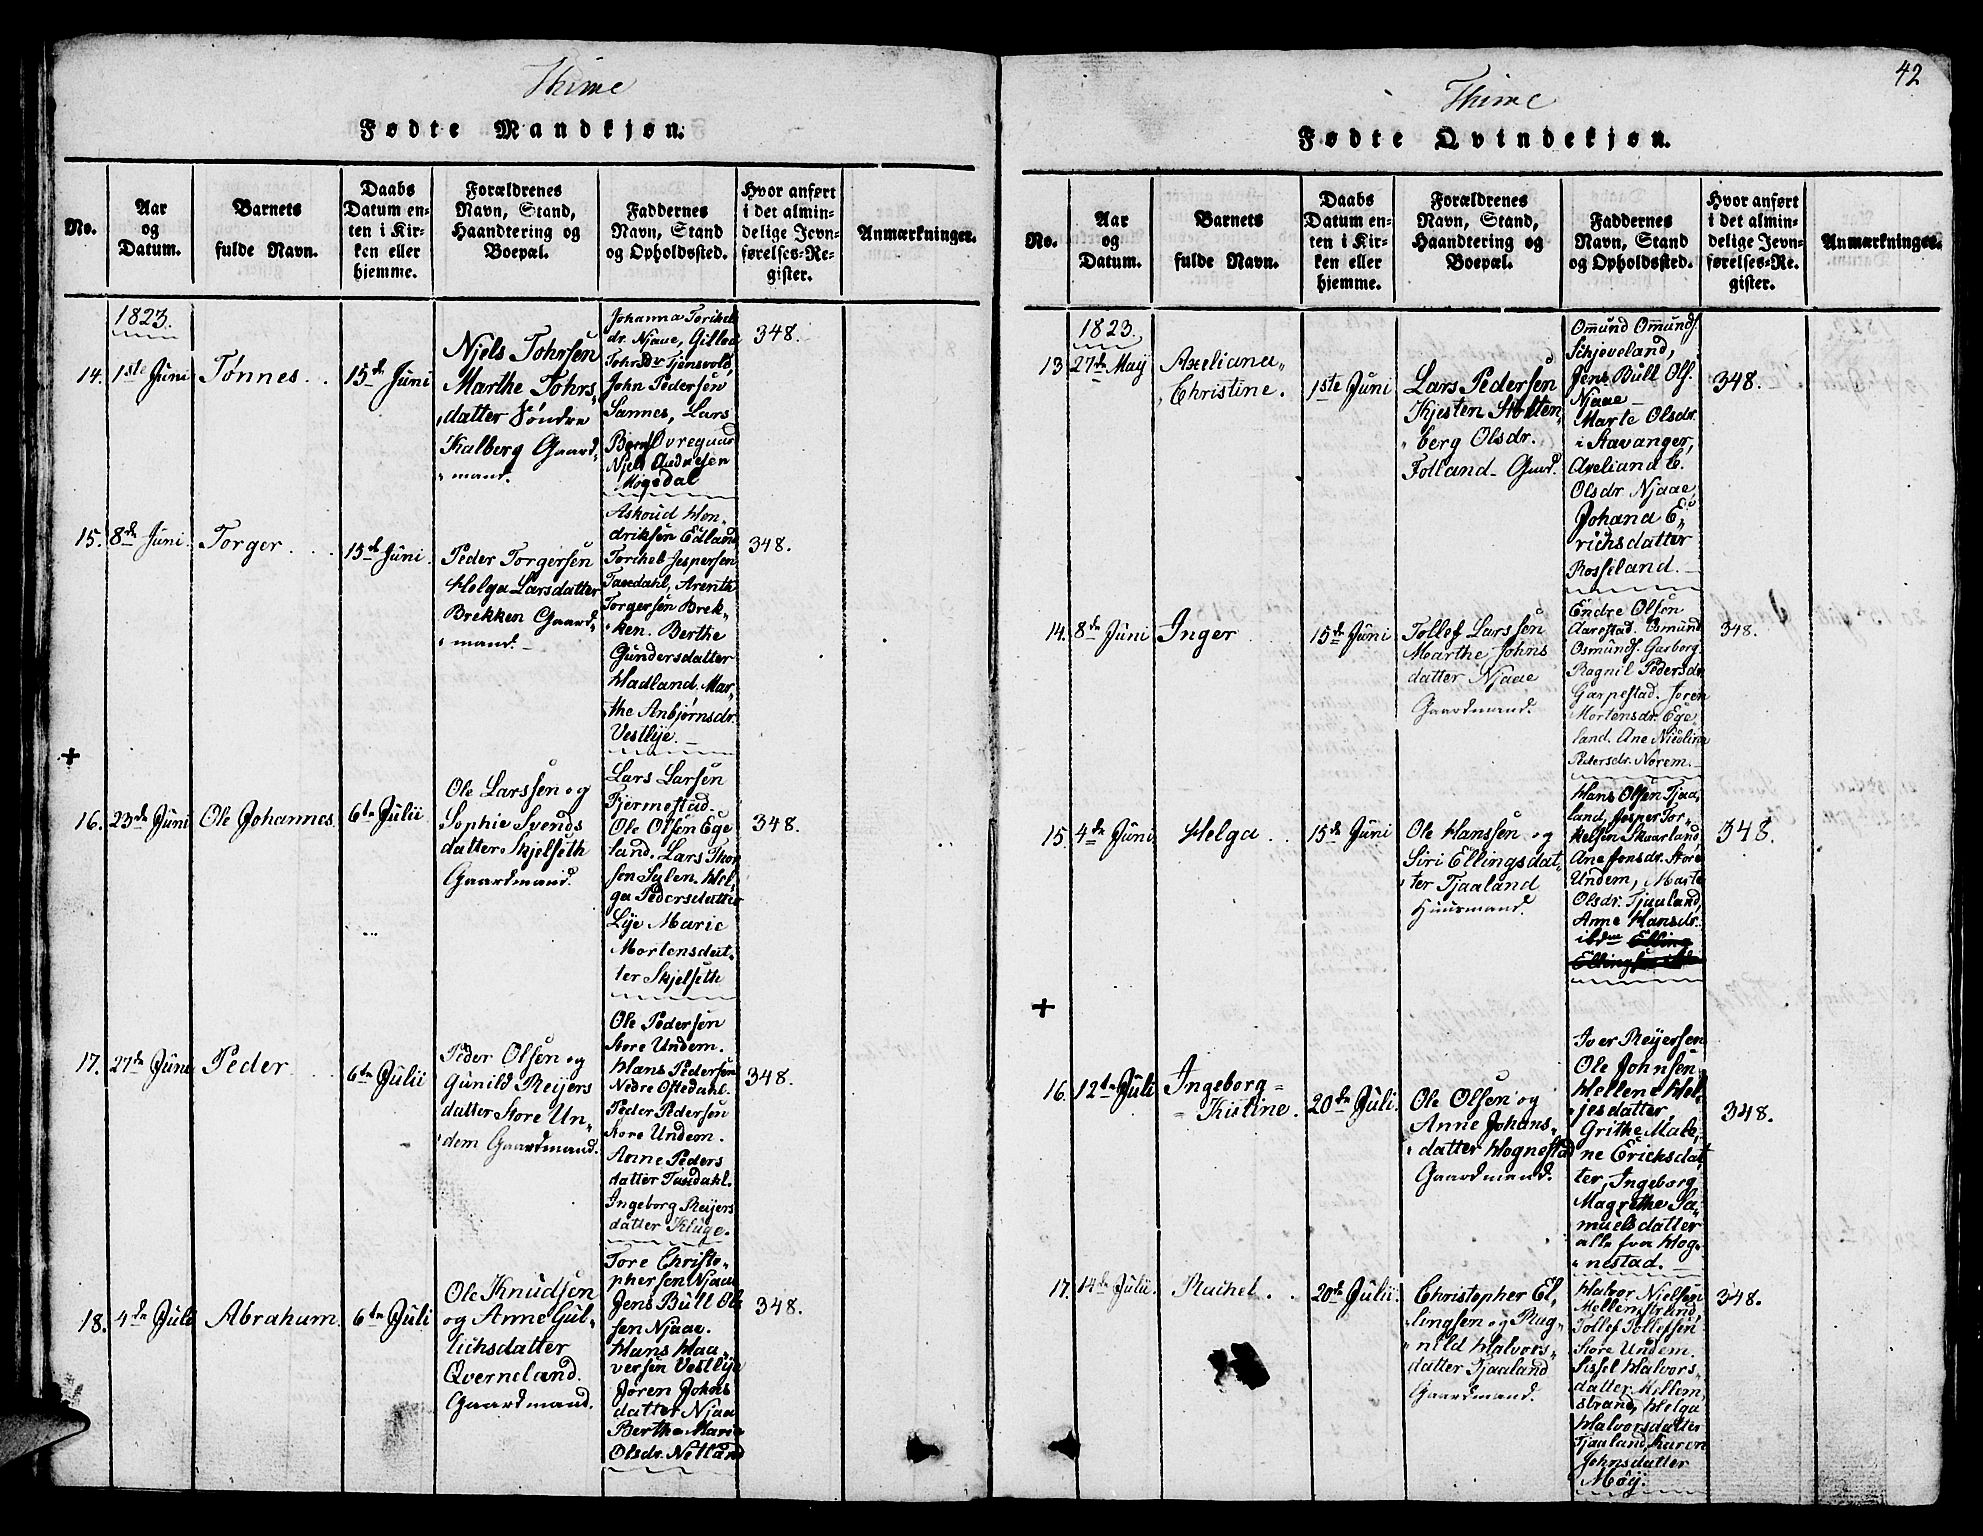 Thime
Fødte Mandkjøn.
No.
Aar
og
Datum.
Barnets
fulde Navn.
Daabs
Datum en-
ten i Kir-
ken eller
hjemme.
Forældrenes
Navn, Stand,
Haandtering og
Boepæl.
Faddernes
Navn, Stand
og Opholdssted.
Hvor anført
i det almin-
delige Jevn-
førelses-Re-
gister.
Anmærkninger.
1823.
14.
1ste Juni
Tønnes.
15de Juni
Njels Tohrsen
Marthe Tohrs
datter Søndre
Kalberg Gaard-
mand.
Johanna Torikels
dr. Njaae,
Tohrsdr Tjensvold,
John Pedersen
Sannes, Lars
Øvregaar
Njels Andresen
Høgsdal
348.
15.
8de Juni.
Torger.
15de Juni.
Peder Torgersen
Helga Larsdatter
Brekken Gaard-
mand.
Askoud Hen-
driksen Edland
Torikel Jespersen
Taxedahl, Arent
Torgersen Brek-
ken. Berthe
Gundersdatter
Hadland. Mar-
the Anbjørnsdr.
Vestlye.
348.
+
16.
23de Juni
Ole Johannes.
6te Julii
Ole Larssen og
Sophie Svends
datter Skjelseth
Gaardmand.
Lars Larsen
Fjermestad.
Ole Olsen Ege
land. Lars Thor
sen Sylen. Hel-
ga Pedersdatter
Lye Marie
Mortensdat-
ter Skjelseth
348.
17.
27de Juni
Peder
6te Julii
Peder Olsen og
Gunild Reijers
datter Store Un-
dem Gaardmand.
Ole Pedersen
Store Undem.
Hans Pedersen
Nedre Oftedahl.
Peder Pedersen
Store Undem.
Anne Peders
datter Taxdahl.
Ingeborg Reijers
datter Kluge.
348.
18.
4de Juli
Abraham.
6te Juli
Ole Knudsen
og Anne Gul-
lichsdatter
Qverneland.
Gaardmand.
Tore Christo-
phersen Njaae
Jens Bull Ol
sen Njaae.
Hans Haa-
versen Vestlye
Jøren Johns
datter Njaa
Berthe Marie
Olsdr. Netland
348.
42
Thime
Fødte Qvindekjøn.
No.
Aar
og
Datum.
Barnets
fulde Navn.
Daabs
Datum en-
ten i Kir-
ken eller
hjemme.
Forældrenes
Navn, Stand,
Haandtering og
Boepæl.
Faddernes
Navn, Stand
og Opholdssted.
Hvor anført
i det almin-
delige Jevn-
førelses-Re-
gister.
Anmærkninger.
1823.
13.
27de Maij
Axeliana
Christine.
1ste Juni
Lars Pedersen
Kjesten Stolten-
berg Olsdr.
Folland Gaard.
Omund Omunds.
Schjeveland,
Jens Bull Ols.
Njaae
Marte Olsdr.
i Stavanger,
Axeliand C.
Olsdr Njaae
Johana E-
richsdatter
Rosseland.
348.
14.
8de Juni
Inger
15de Juni
Tollef Larssen
Marthe Johns
datter Njaae
Gaardmand.
Endre Olsen
Aarestad. Osmund
Osmunds. Garborg
Ragnil Pedersdr
Garpestad. Jøren
Mortensdr. Ege-
land. Ane Nicoline
Pedersdr. Norem.
348.
15.
4de Juni
Helga
15de Juni
Ole Hanssen og
Siri Ellingsdat-
ter Tjaaland
Huusmand.
Hans Olsen Tjaa-
land, Jesper Tor-
kelsen Skaarland
Ane Jonsdr. Store
Undem, Marte
Olsdr. Tjaaland,
Anne Hansdr.
ibdm Elling
Ellingsen
348.
+
16.
12te Juli
Ingeborg
Kistine.
20de Juli.
Ole Olsen og
Anne Johans-
datter Hognestad
Gaardmand.
Iver Reijersen
Ole Johnsen
Hellene Hel-
jesdatter
Grithe Male-
ne Erichsdat-
ter, Ingeborg
Magrethe Sa-
muelsdatter
alle fra Hog-
nestad.
348.
17.
14de Julii.
Rachel.
20de Julii.
Christopher El-
lingsen og Rag-
nild Halvors-
datter Tjaaland
Gaardmand.
Halvor Nielsen
Mellemstrand
Tollef Tollefsen
Store Undem.
Sissel Halvors-
datter Mellem-
strand, Helga
Halvorsdatter
Tjaaland, Karen
Johnsdatter
Møij.
348.